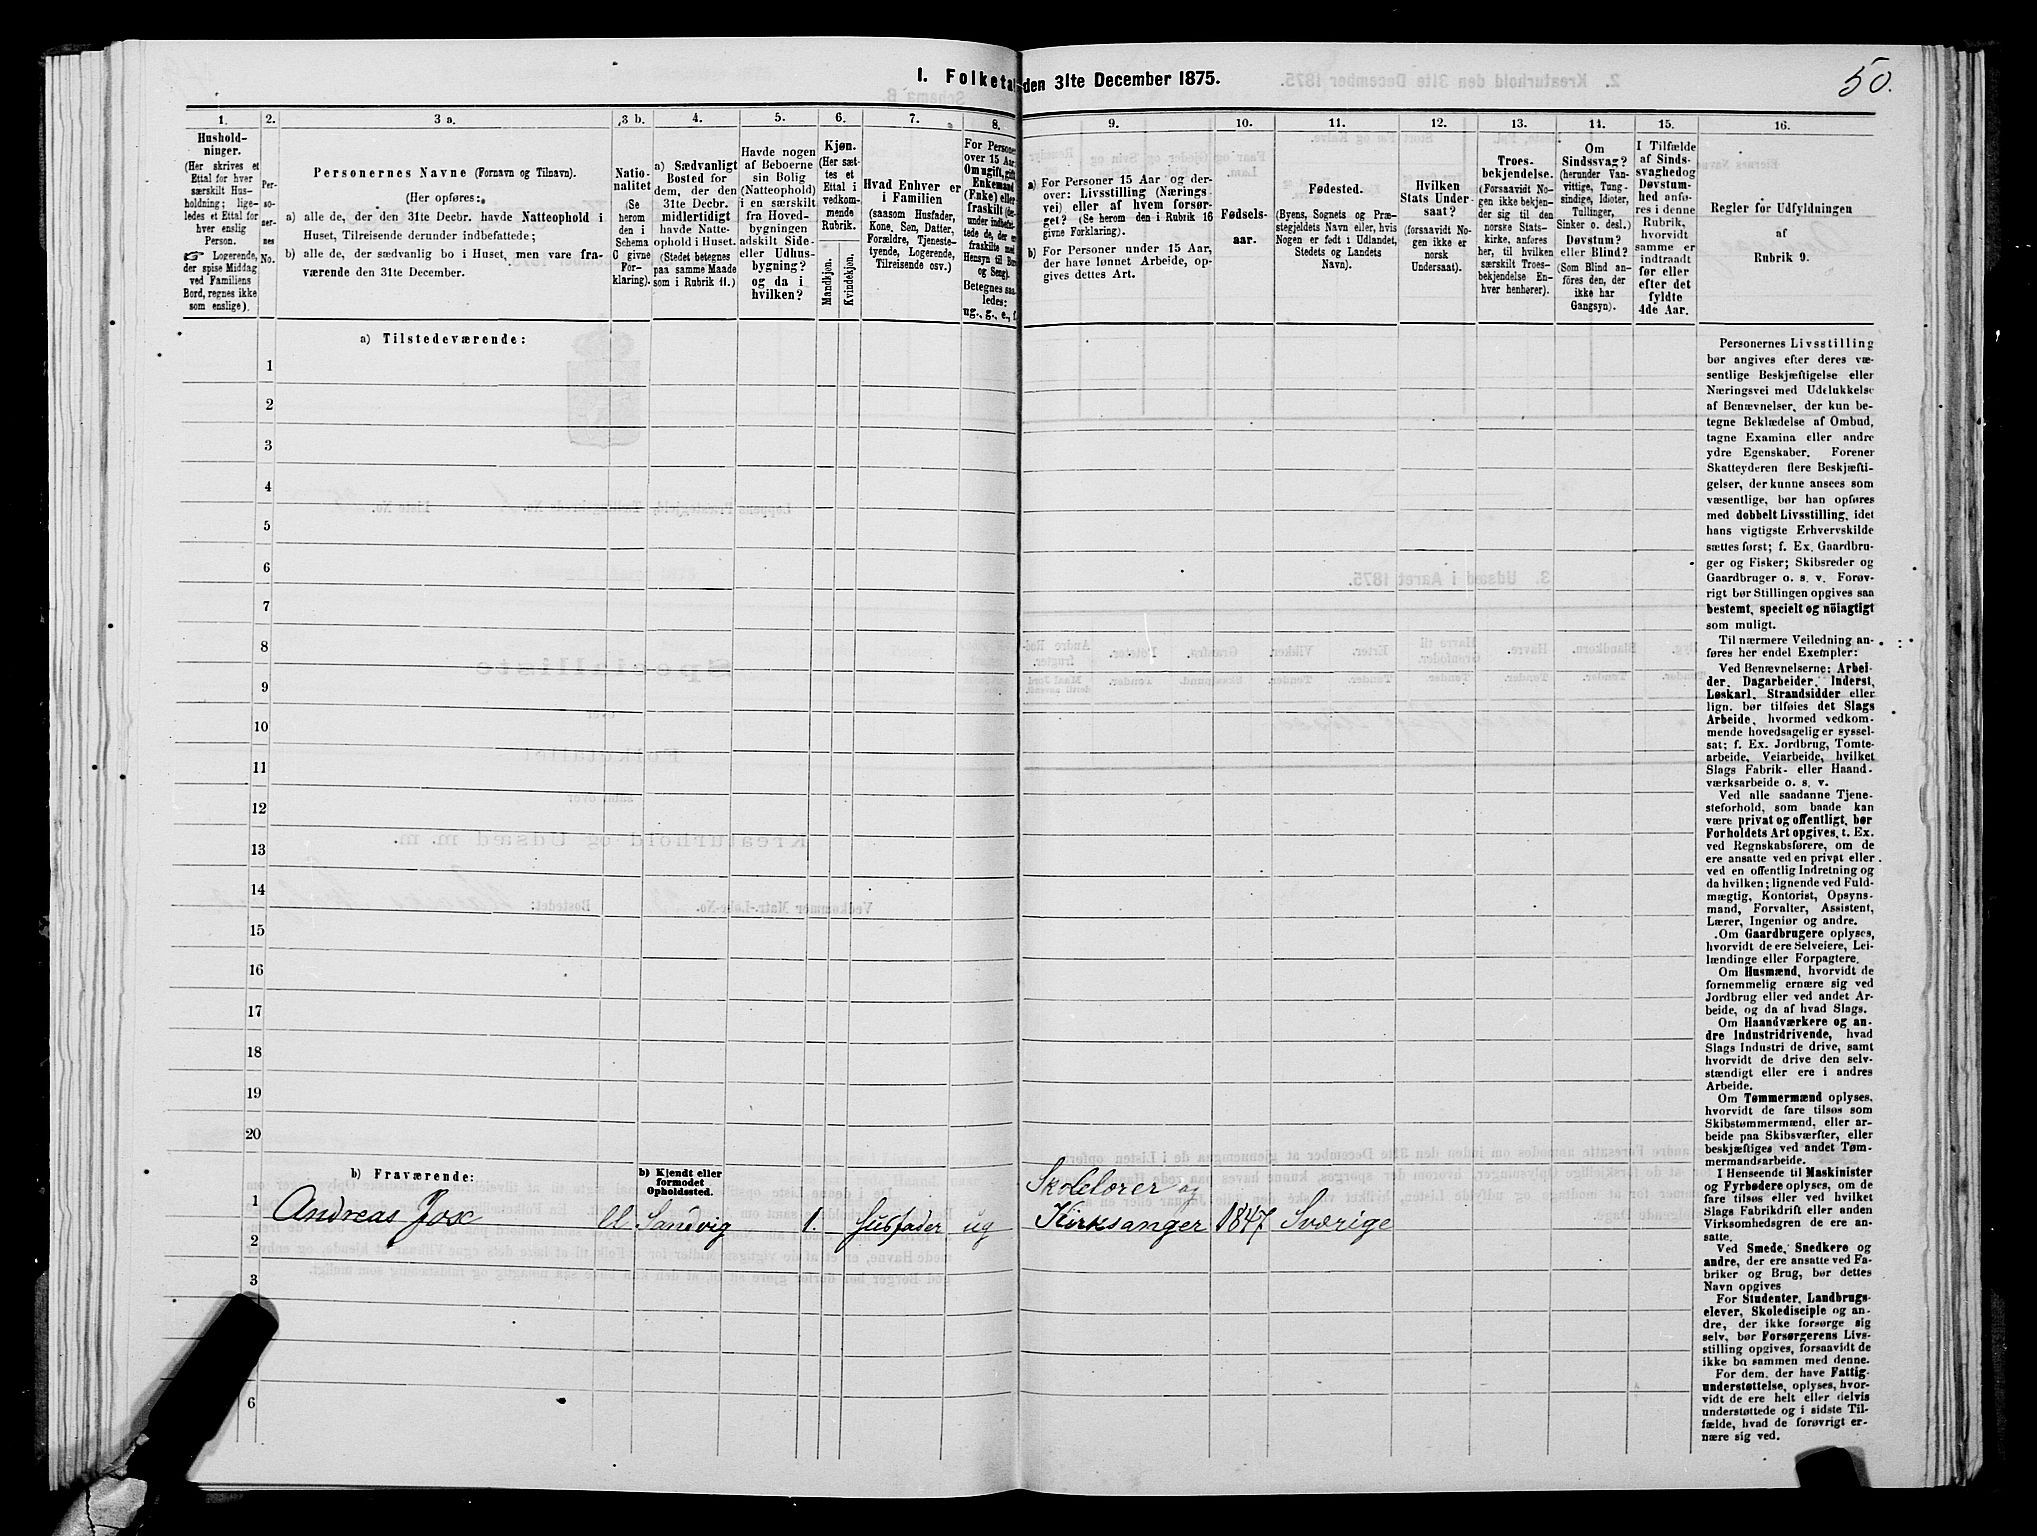 50.
1. Folketal den 31te December 1875.
1.
Hushold-
ninger.
(Her skrives et
Ettal for hver
særskilt Hus-
holdning; lige-
ledes et Ettal for
hver enslig
Person.
Logerende,
der spise Middag
ved Familiens
Bord, regnes ikke
som enslige).
2.
Per-
so-
ner-
nes
No.
3 a.
Personernes Navne (Fornavn og Tilnavn).
(Her opføres:
a) alle de, der den 31te Decbr. havde Natteophold i
Huset, Tilreisende derunder indbefattede;
b) alle de, der sædvanlig bo i Huset, men vare fra-
værende den 31te December.
3 b.
Natio-
nalitet
(Se
herom
den i
Schema
C givne
For-
klaring).
4.
a) Sædvanligt
Bosted for
dem, der den
31te Decbr.
midlertidigt
havde Natte-
ophold i Huset.
(Stedet betegnes
paa samme Maade
som i Rubrik 11.)
5.
Havde nogen
af Beboerne
sin Bolig
(Natteophold)
i en særskilt
fra Hoved-
bygningen
adskilt Side-
eller Udhus-
bygning?
og da i
hvilken?
6.
Kjøn.
(Her sæt-
tes et
Ettal i
vedkom-
mende
Rubrik.
Mandkjøn.
Kvindekjøn.
7.
Hvad Enhver er
i Familien
(saasom Husfader,
Kone, Søn, Datter,
Forældre, Tjeneste-
tyende, Logerende,
Tilreisende osv.)
8.
For Personer
over 15 Aar:
Om ugift, gift,
Enkemand
(Enke) eller
fraskilt
Betegnes saa-
ledes:
ug., g., e., f.
9.
a) For Personer 15 Aar og der-
over: Livsstilling (Nærings-
vei) eller af hvem forsør-
get? (Se herom den i Rubrik 16
givne Forklaring).
b) For Personer under 15 Aar,
der have lønnet Arbeide, op-
gives dettes Art.
10.
Fødsels-
aar.
11.
Fødested.
(Byens, Sognets og Præ-
stegjeldets Navn eller, hvis
Nogen er født i Udlandet,
Stedets og Landets
Navn).
12.
Hvilken
Stats Under-
saat?
(forsaavidt No-
gen ikke er
norsk
Undersaat).
13.
Troes-
bekjendelse.
(Forsaavidt No-
gen ikke bekjen-
der sig til den
norske Stats-
kirke, anføres
her, til hvilken
særskilt Troes-
bekjendelse En-
hver henhører).
14.
Om
Sindssvag?
(herunder Van-
vittige, Tung-
sindige, Idioter,
Tullinger,
Sinker o. desl.)
Døvstum?
eller Blind?
(Som Blind an-
føres den, der
ikke har
Gangsyn).
15.
I Tilfælde
af Sinds-
svaghed og
Døvstum-
hed anfø-
res i denne
Rubrik,
hvorvidt
samme er
indtraadt
før eller
efter det
fyldte
4de Aar.
16.
Regler for Udfyldningen
af
Rubrik 9.
a) Tilstedeværende:
1
2
3
4
5
6
7
8
9
10
11
12
13
14
15
16
17
18
19
20
b) Fraværende:
b) Kjendt eller
formodet
Opholdssted.
1 Andreas Sandvig 1. Husfader ug Skolelærer og
Kirksanger 1847 Sværige
2
3
6
Personernes Livsstilling
bør angives efter deres væ-
sentlige Beskjæftigelse eller
Næringsvei med Udelukkelse
af Benævnelser, der kun be-
tegne Beklædelse af Ombud,
tagne Examina eller andre
ydre Egenskaber. Forener
Skatteyderen flere Beskjæfti-
gelser, der kunne ansees som
væsentlige, bør han opføres
med dobbelt Livsstilling, idet
hans vigtigste Erhvervskilde
sættes først; f. Ex. Gaardbru-
ger og Fisker; Skibsreder og
Gaardbruger o. s. v. Forøv-
rigt bør Stillingen opgives saa
bestemt, specielt og nöiagtigt
som muligt.
Til nærmere Veiledning an-
føres her endel Exempler:
Ved Benævnelserne: Arbei-
der, Dagarbeider, Inderst,
Løskarl, Strandsidder eller
lign. bør tilføies det Slags
Arbeide, hvormed vedkom-
mende hovedsagelig er syssel-
sat; f. Ex. Jordbrug, Tomte-
arbeide, Veiarbeide, hvilket
Slags Fabrik- eller Haand-
værksarbeide o. s. v.
Ved alle saadanne Tjene-
steforhold, som baade kan
være privat og offentligt, bør
Forholdets Art opgives, t. Ex.
ved Regnskabsførere, om de
ere ansatte ved en privat eller
ved en offentlig Indretning og
da hvilken; lignende ved Fuld-
mægtig, Kontorist, Opsyns-
mand, Forvalter, Assistent,
Lærer, Ingeniør og andre.
Om Gaardbrugere oplyses,
hvorvidt de ere Selveiere, Lei-
lændinge eller Forpagtere.
Om Husmænd, hvorvidt de
fornemmelig ernære sig ved
Jordbrug eller ved andet Ar-
beide, og da af hvad Slags.
Om Haandværkere og an-
dre Industridrivende, hvad
Slags Industri de drive, samt
hvorvidt de drive den selv-
stændigt eller ere i andres
Arbeide.
Om Tømmermænd oplyses,
hvorvidt de fare tilsøs som
Skibstømmermænd, eller ar-
beide paa Skibsværfter, eller
beskjæftiges ved andet Tøm-
mermandsarbeide.
I Henseende til Maskinister
og Fyrbødere oplyses, om de
fare tilsøs eller ved hvilket
Slags Fabrikdrift eller anden
Virksomhedsgren de ere an-
satte.
Ved Smede, Snedkere og
andre, der ere ansatte ved Fa-
briker og Brug, bør dettes
Navn opgives
For Studenter, Landbrugs-
elever, Skoledisciple og an-
dre, der ikke forsørge sig
selv, bør Forsørgerens Livs-
stilling opgives, forsaavidt de
ikke bo sammen med denne.
For dem, der have Fattig-
understøttelse, oplyses, hvor-
vidt de ere helt eller delvis
understøttede og i sidste Til-
fælde, hvad de forøvrigt er-
nære sig ved.